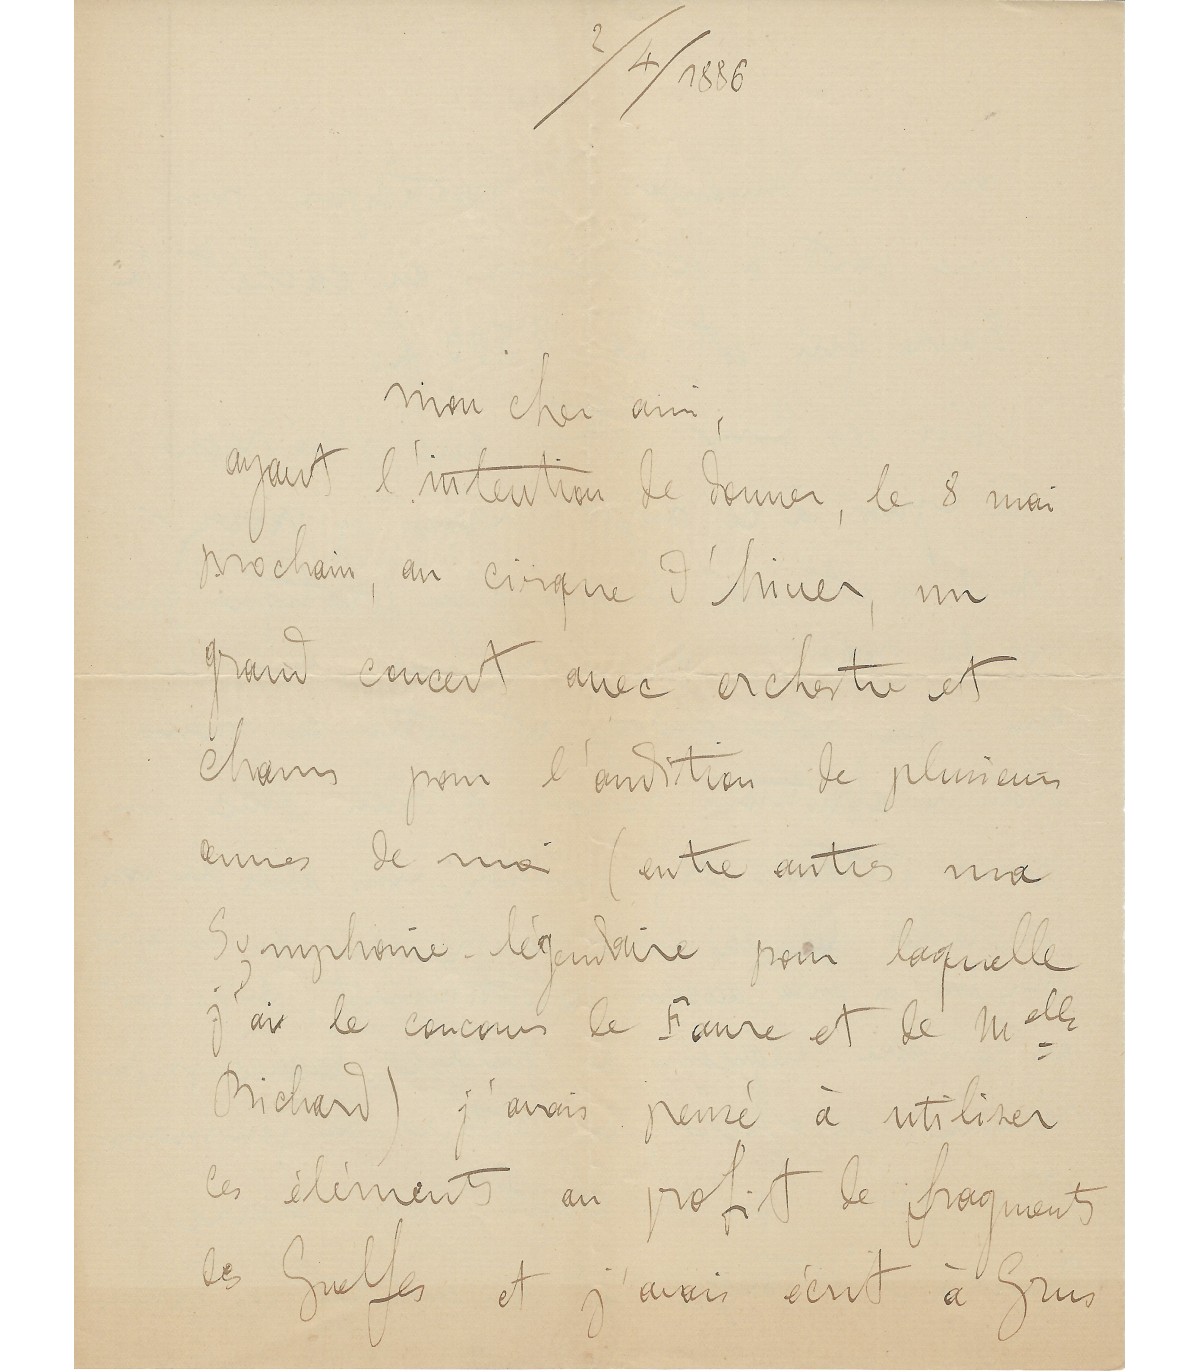 2/4/1886
mon cher ami,
ayant l'intention de donner, le 8 mai
prochain, au cirque d'hiver, un
grand concert avec orchestre et
chœurs pour l'audition de plusieurs
œuvres de moi (entre autres ma
Symphonie-légendaire pour laquelle
j'ai le concours de Faure et de Melle
Richard) j'avais pensé à utiliser
ces éléments au profit de fragments
des Guelfes et j'avais écrit à Grus